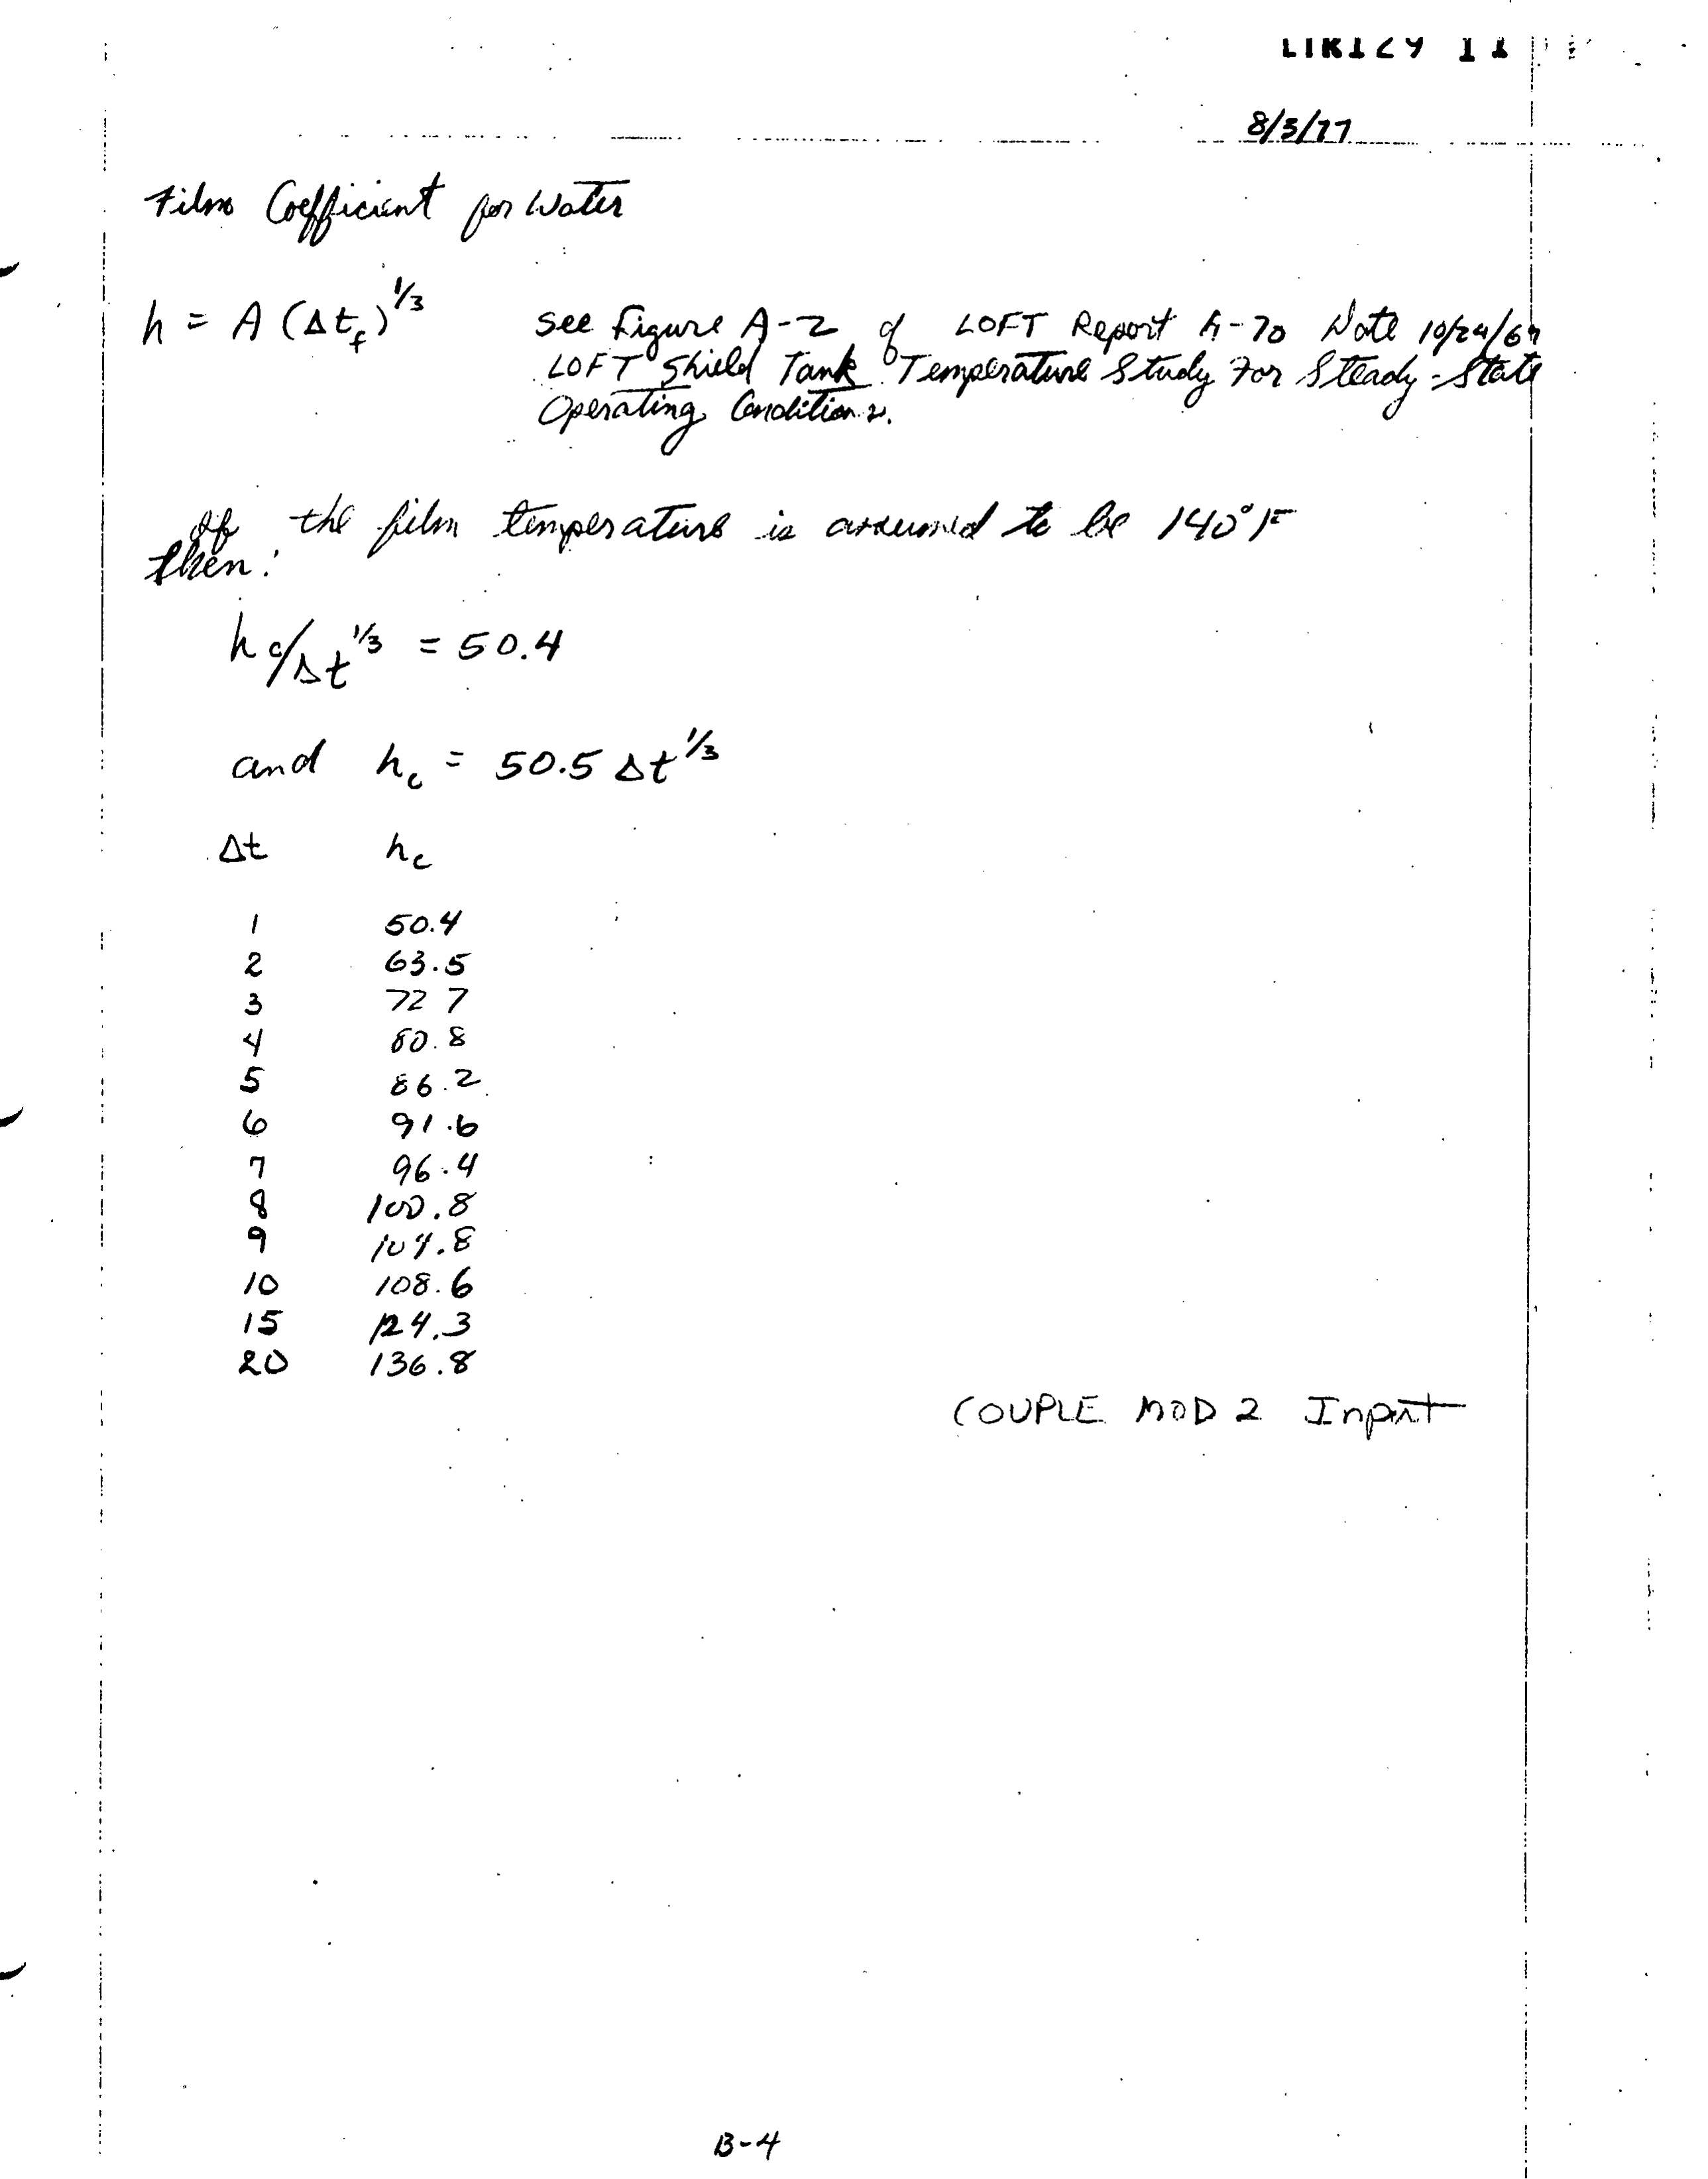 LTR1129 11
8/3/77
Film Coefficient for Water
h = A (Δt_f)^1/3
see Figure A-2 of LOFT Report A-70 Date 10/24/69
LOFT Shield Tank Temperature Study For Steady-State
Operating Conditions.
If the film temperature is assumed to be 140°F
then:
h_c/Δt^1/3 = 50.4
and h_c = 50.5 Δt^1/3
Δt h_c
1 50.4
2 63.5
3 72 7
4 80.8
5 86.2
6 91.6
7 96.4
8 100.8
9 104.8
10 108.6
15 124.3
20 136.8
COUPLE MOD 2 Input
B-4